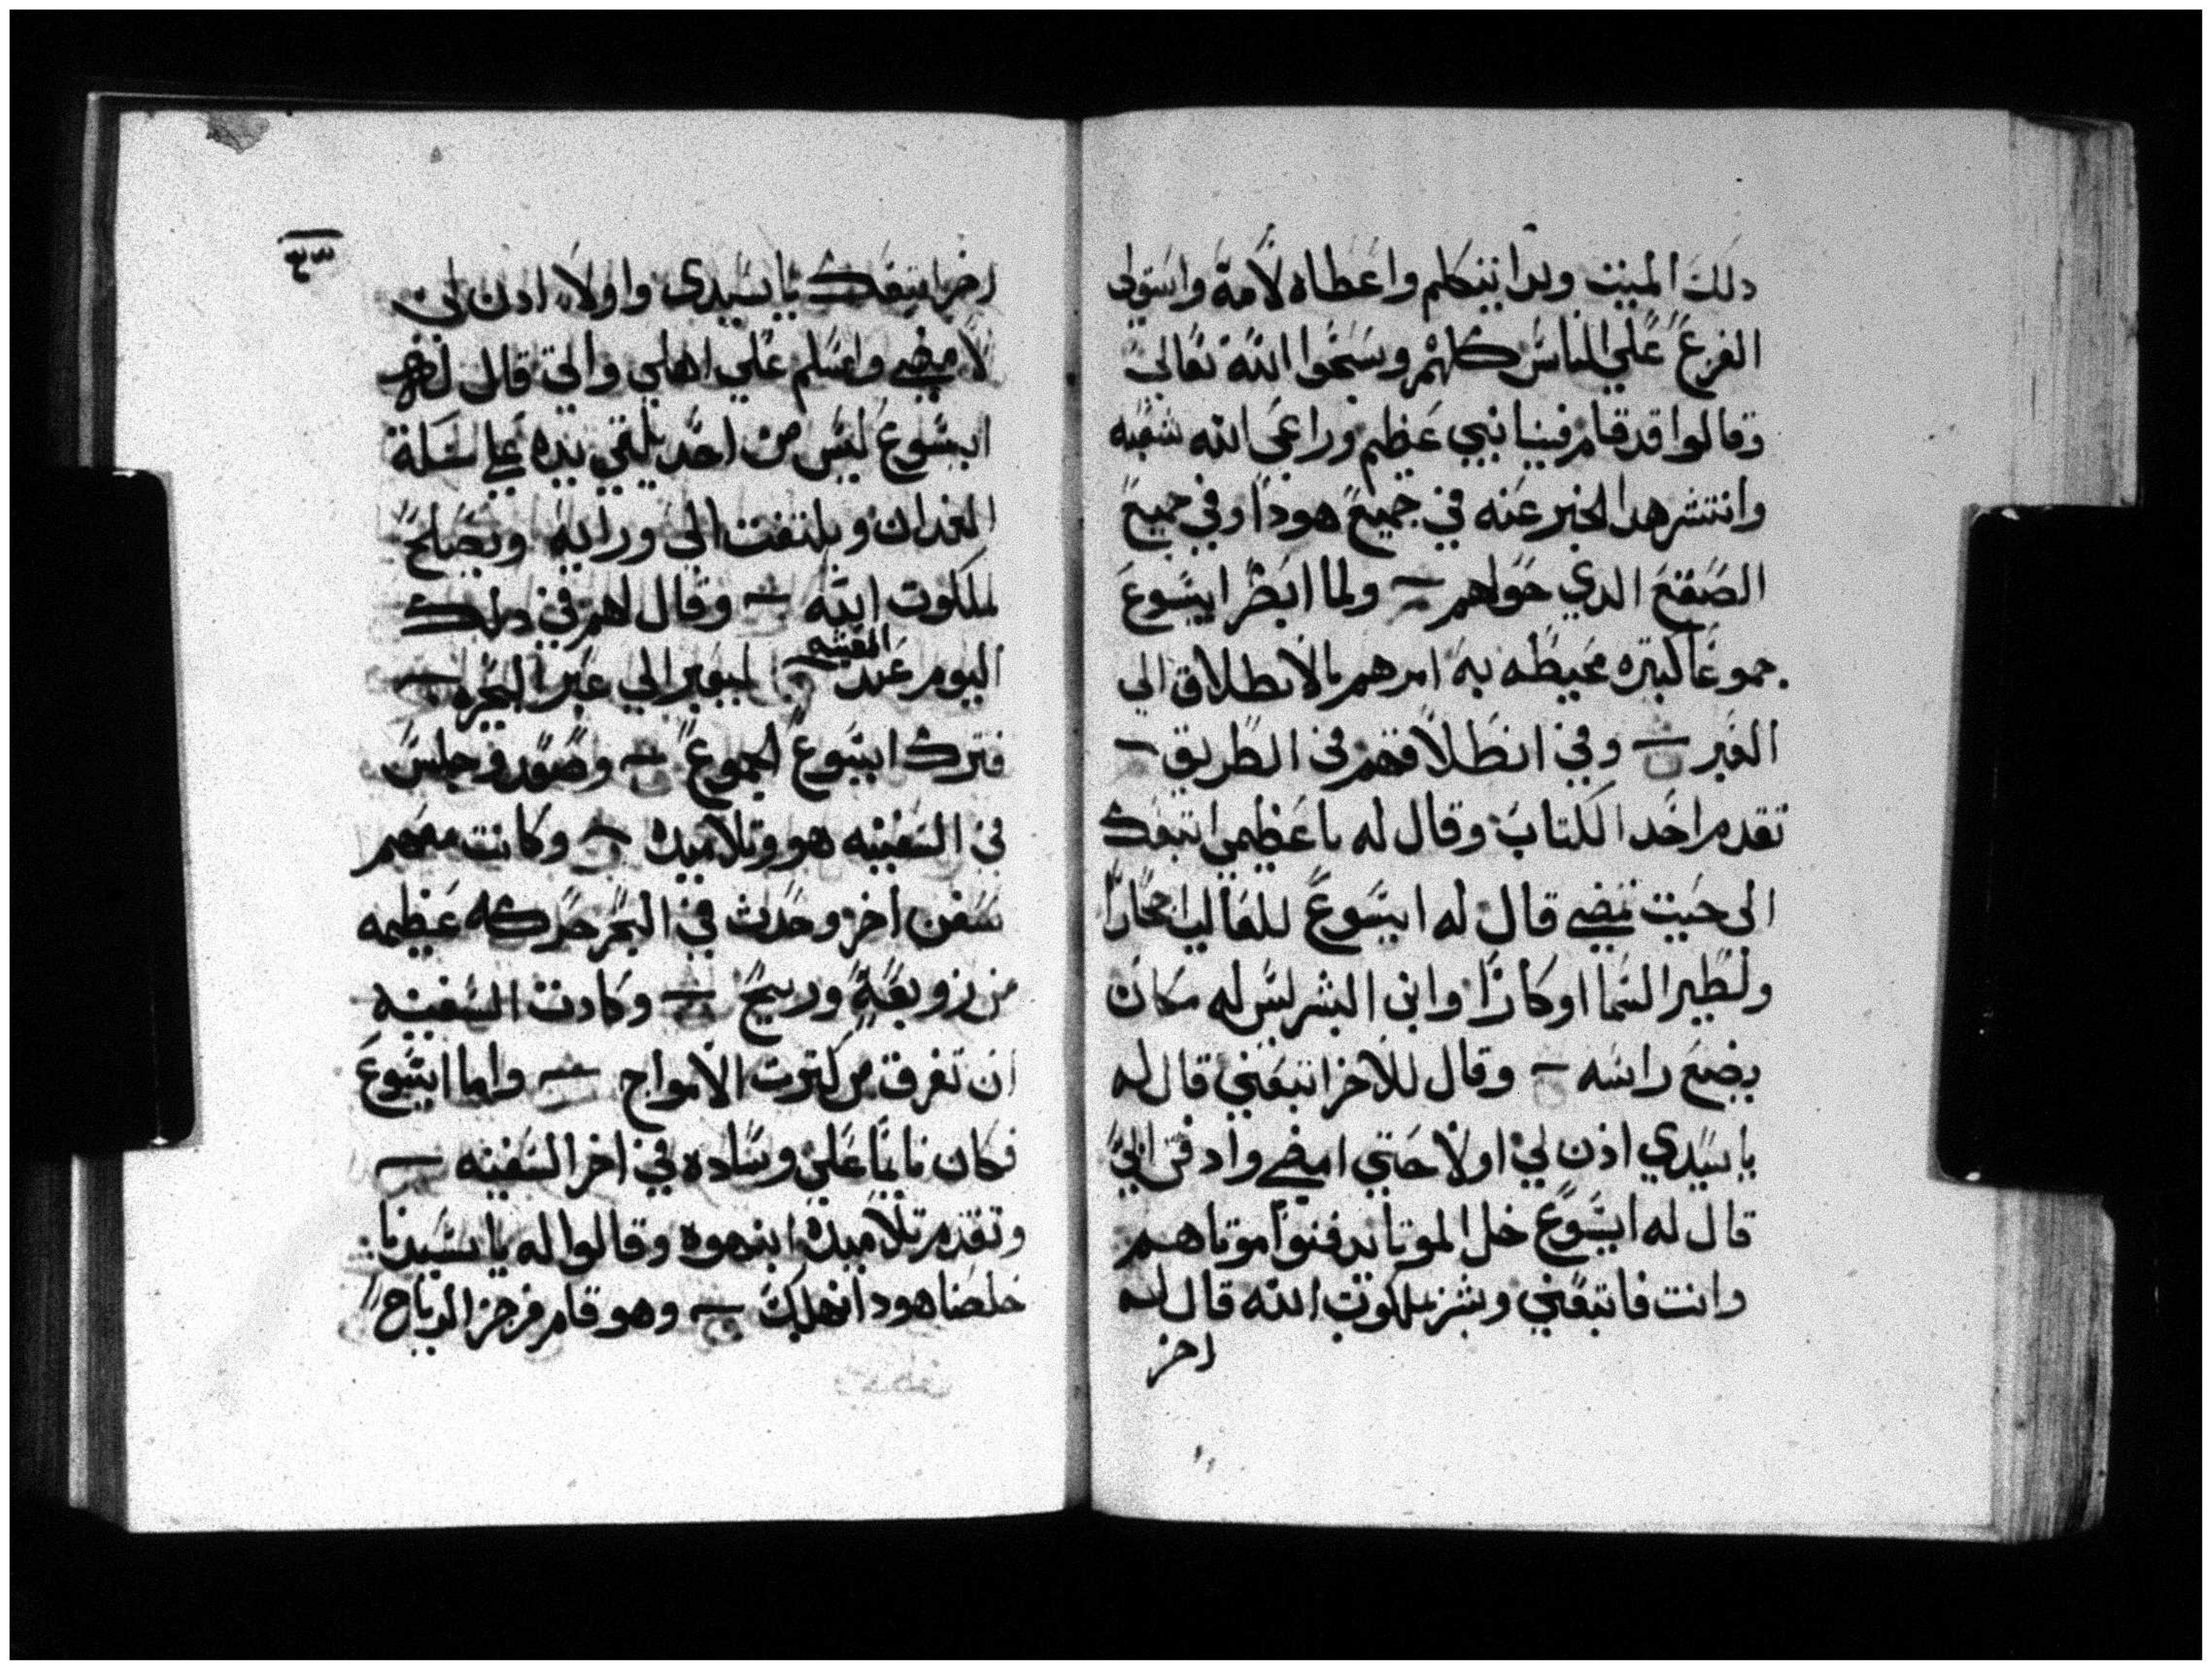 دلك الميت وبدا يتكلم واعطاه لامه واستولى
الفزع على الناس كلهم وسبحوا الله تعالى
وقالوا قد قام فينا نبي عظيم وراعى الله شعبه
وانتشر هدا الخبر عنه في جميع هودا وفي جميع
الصقع الدي حولهم ولما ابصر ايسوع
جموعا كثيره محيطه به امرهم بالانطلاق الى
العبر وفي انطلاقهم في الطريق
تقدم احد الكتاب وقال له يا عظيمي اتبعك
الي حيت تمضي قال له ايسوع للثعالب احجارا
ولطير السما اوكارا وابن البشر ليس له مكان
يضع راسه وقال للاخر اتبعني قال له
يا سيدي اذن لي اولا حتي امضي وادفن ابي
قال له ايسوع خل الموتا يدفنوا موتاهم
وانت فاتبعني وبشر بملكوت الله قال له
اخر
٤٣
اخر اتبعك يا سيدي واولا ادن لي
لامضي واسلم علي اهلي واتي قال له
ايسوع ليس من احد يلقي يده علي سكة
الفدان ويلتفت الي ورايه ويصلح
لملكوت الله وقال لهم في دلك
اليوم عند العشيه لنعبر الي عبر البحره
فترك ايسوع الجموع وصعد وجلس
في السفينه هو وتلاميده وكانت معهم
سفن اخر وحدث في البحر حركه عظيمه
من زوبعة وريح وكادت السفينه
ان تغرق من كثرت الامواج واما ايسوع
فكان نايما علي وساده في اخر السفينه
وتقدم تلاميده انبهوه وقالوا له يا سيدنا
خلصنا هودا نهلك وهو قام فزجر الرياح